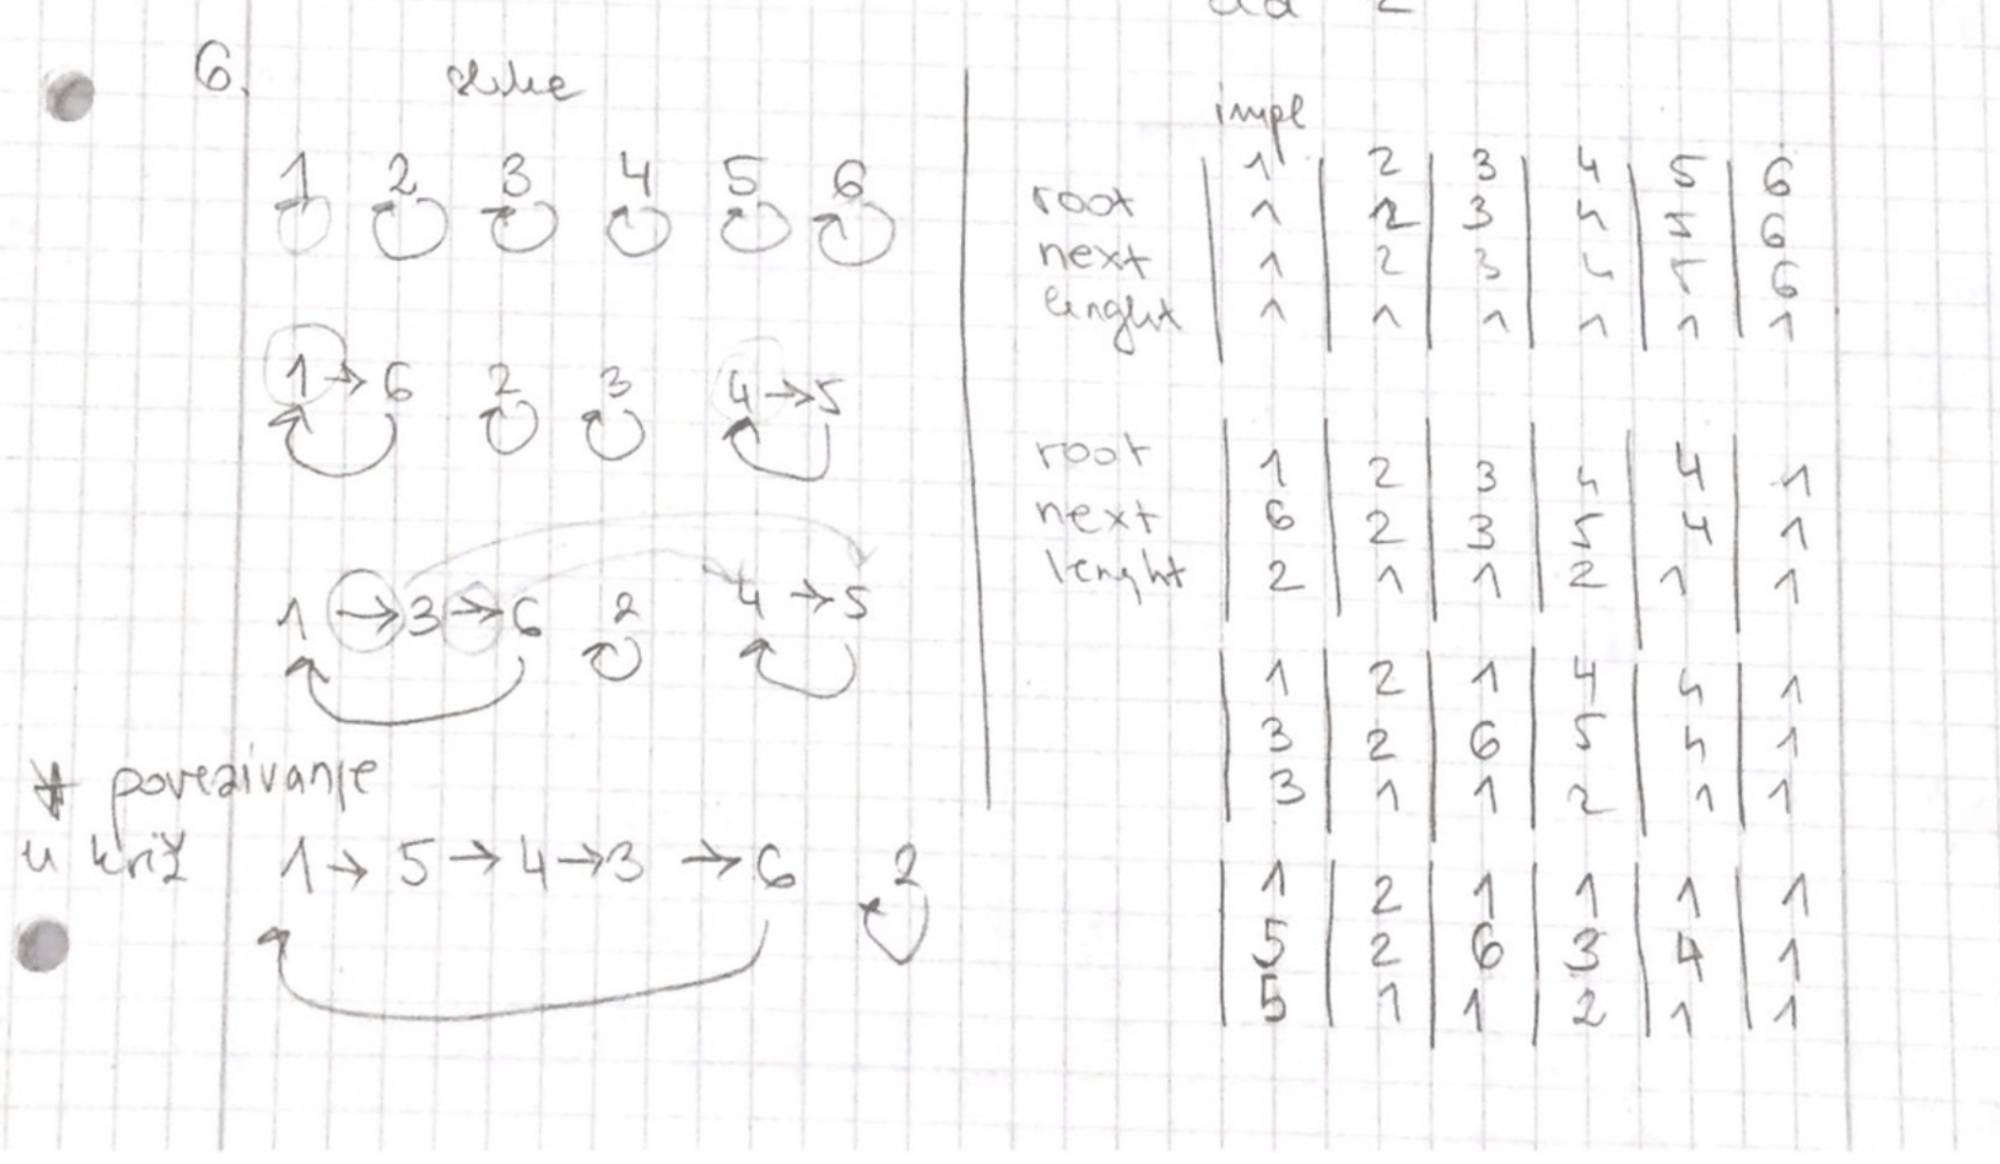 6. slike
1 2 3 4 5 6
1 → 6 2 3 4 → 5
1 → 3 → 6 2 4 → 5
* povezivanje
u križ
1 → 5 → 4 → 3 → 6 2
impl
1 2 3 4 5 6
root 1 2 3 4 5 6
next 1 2 3 4 5 6
lenght 1 1 1 1 1 1
root 1 2 3 4 4 1
next 6 2 3 5 4 1
lenght 2 1 1 2 1 1
1 2 1 4 4 1
3 2 6 5 4 1
3 1 1 2 1 1
1 2 1 1 1 1
5 2 6 3 4 1
5 1 1 2 1 1